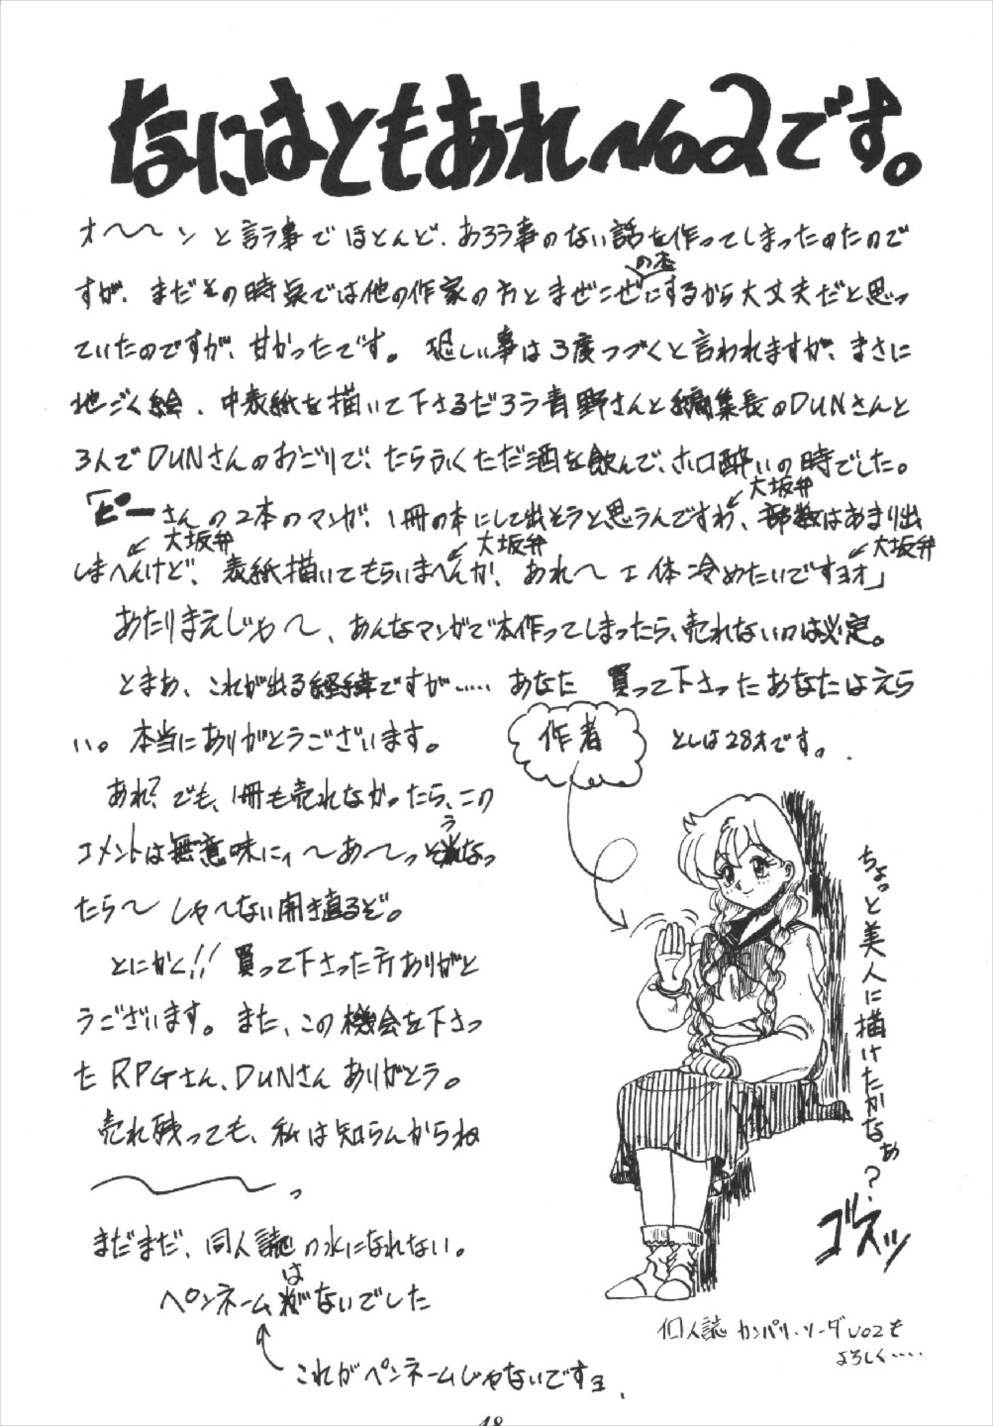 なにはともあれ〜No2です。
オ〜〜ン と言う事で ほとんど、あろう事のない話を作ってしまったのたので
すが、まだその時点では他の作家の方とまぜこぜの本にするから大丈夫だと思っ
ていたのですが、甘かったです。 恐しい事は3度つづくと言われますが、まさに
地ごく絵、中表紙を描いて下さるだろう青野さんと編集長のDUNさんと
3人でDUNさんのおごりで、たらふくただ酒を飲んで、ホロ酔いの時でした。
「ピーさんの2本のマンガ、1冊の本にして出そうと思うんですわ、部数はあまり出
大坂弁
しまへんけど、表紙描いてもらいまへんか、あれ〜 エ 体 冷めたいですヨオ」
大坂弁
大坂弁
大坂弁
あたりまえじゃ〜、あんなマンガで本作ってしまったら、売れないのは必定。
とまあ、これが出る経緯ですが‥‥‥ あなた 買って下さったあなたはえら
い。本当にありがとうございます。
あれ?でも、1冊も売れなかったら、この
コメントは無意味にィ〜あ〜っ そうなっ
たら〜 しゃ〜ない開き直るぞ。
とにかく!! 買って下さった方ありがと
うございます。また、この機会を下さっ
た RPGさん、DUNさん ありがとう。
売れ残っても、私は知らんからね
〜〜っ
まだまだ、同人誌の水になれない。
ペンネームはないでした
これがペンネームじゃないですョ、
作者
としは28才です。
ちょっと美人に描けたかなぁ?
ゴルスッ
同人誌 カンパリ・ソーダVO2も
よろしく‥‥
18